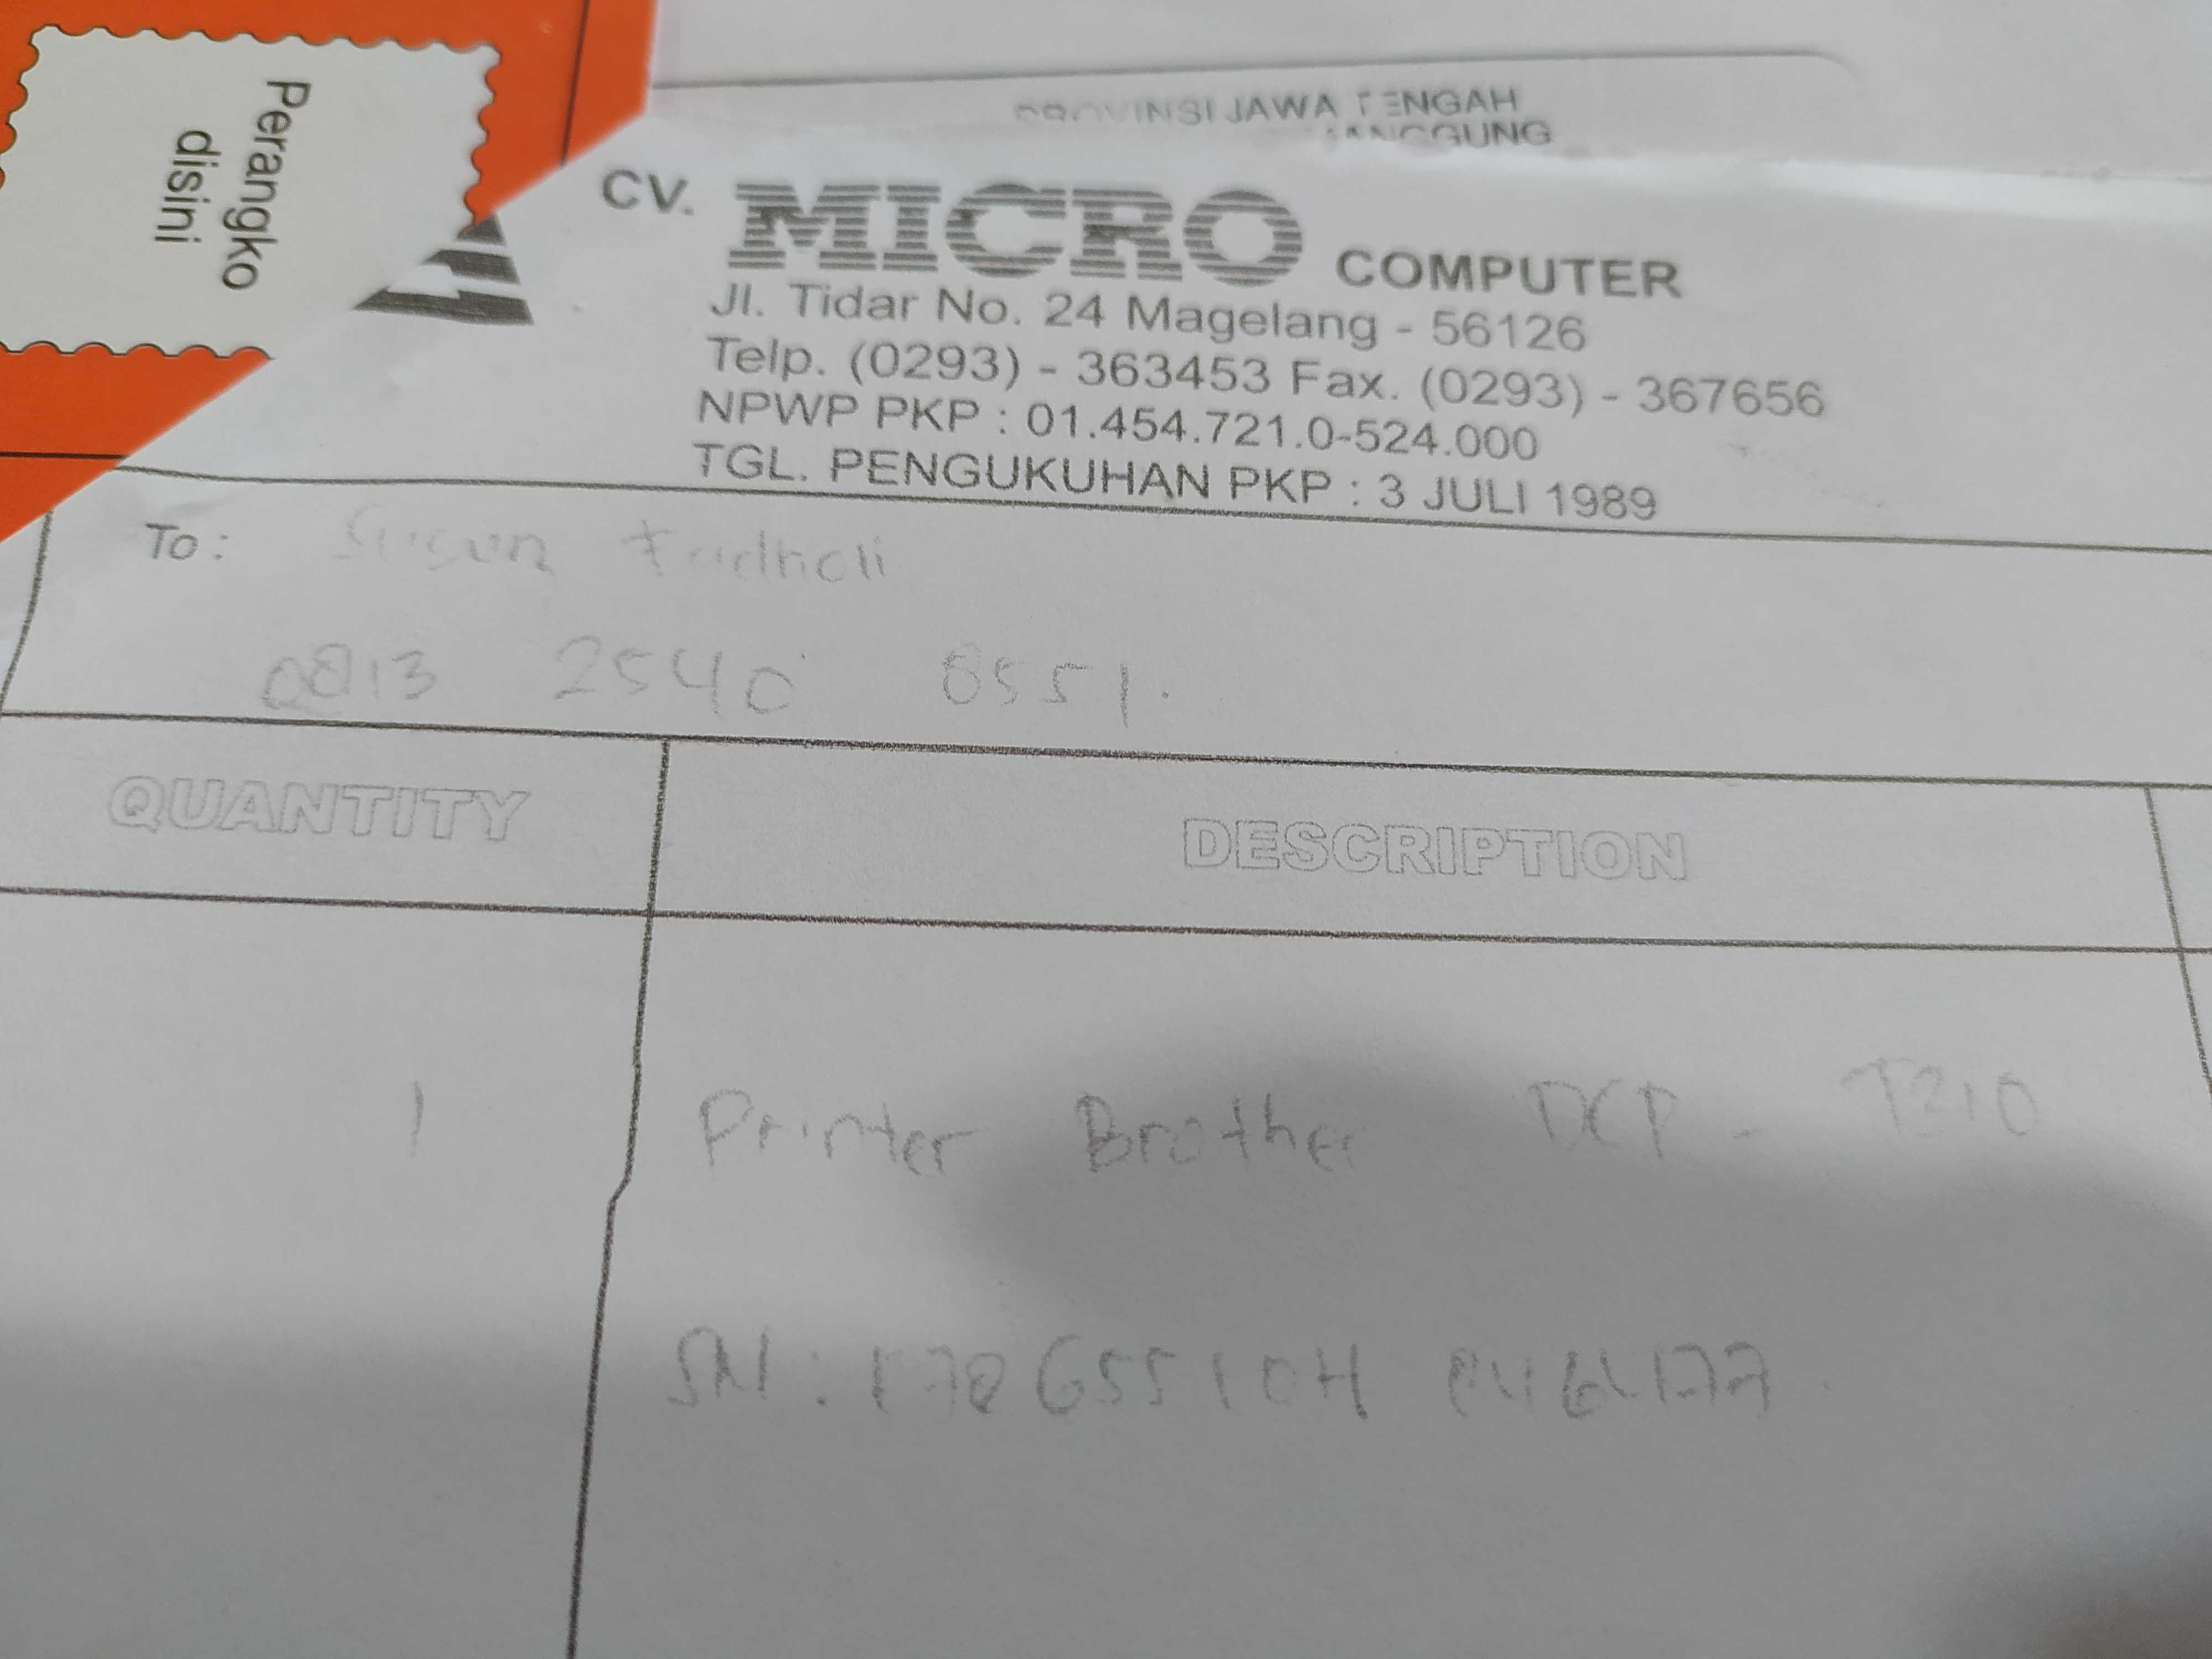 Perangko
disini
PROVINSI JAWA TENGAH
CV. MICRO COMPUTER
Jl. Tidar No. 24 Magelang - 56126
Telp. (0293) - 363453 Fax. (0293) - 367656
NPWP PKP : 01.454.721.0-524.000
TGL. PENGUKUHAN PKP : 3 JULI 1989
To :
0813 2540 8551.
QUANTITY DESCRIPTION
1 Printer Brother DCP - T210
SN :